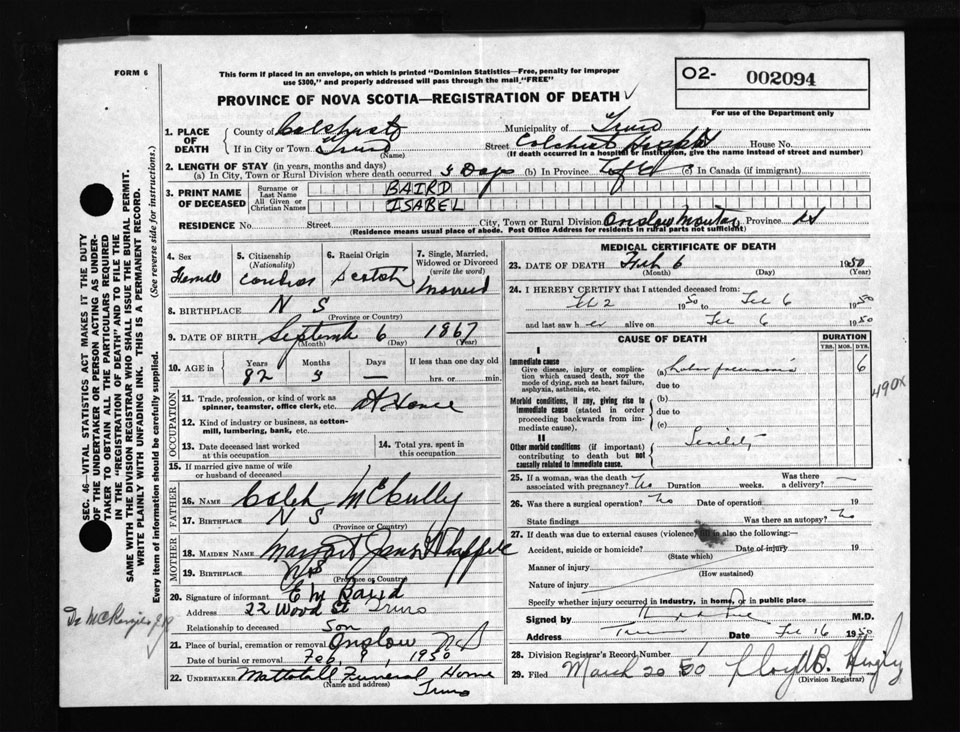 FORM 6
This form if placed in an envelope, on which is printed "Dominion Statistics—Free, penalty for improper
use $300," and properly addressed will pass through the mail "FREE"
O2- 002094
For use of the Department only
PROVINCE OF NOVA SCOTIA—REGISTRATION OF DEATH
1. PLACE OF DEATH
County of Municipality of Truro
If in City or Town Truro (Name) Street House No.
(If death occurred in a hospital or institution, give the name instead of street and number)
2. LENGTH OF STAY (in years, months and days)
(a) In City, Town or Rural Division where death occurred 3 Days (b) In Province Life (c) In Canada (if immigrant)
3. PRINT NAME OF DECEASED
Surname or Last Name BAIRD
All Given or Christian Names ISABEL
RESIDENCE No. Street City, Town or Rural Division Onslow Province NS
(Residence means usual place of abode. Post Office Address for residents in rural parts not sufficient)
4. Sex
5. Citizenship (Nationality)
6. Racial Origin Scotch
7. Single, Married, Widowed or Divorced (write the word) Married
8. BIRTHPLACE N S
(Province or Country)
9. DATE OF BIRTH 6 1867
(Month) (Day) (Year)
10. AGE in Years Months Days If less than one day old
82 3 — hrs. or min.
OCCUPATION
11. Trade, profession, or kind of work as spinner, teamster, office clerk, etc. At Home
12. Kind of industry or business, as cotton-mill, lumbering, bank, etc.
13. Date deceased last worked at this occupation
14. Total yrs. spent in this occupation
15. If married give name of wife or husband of deceased
FATHER
16. NAME Caleb McCully
17. BIRTHPLACE N S
(Province or Country)
MOTHER
18. MAIDEN NAME
19. BIRTHPLACE NS
(Province or Country)
20. Signature of informant E M Baird
Address 22 Wood St Truro
Relationship to deceased Son
21. Place of burial, cremation or removal Onslow
Date of burial or removal Feb 1950
22. UNDERTAKER Mattatall Funeral Home
(Name and address) Truro
MEDICAL CERTIFICATE OF DEATH
23. DATE OF DEATH Feb 6 1950
(Month) (Day) (Year)
24. I HEREBY CERTIFY that I attended deceased from:
Feb 2 1950 to Feb 6 1950
and last saw her alive on Feb 6 1950
CAUSE OF DEATH
DURATION
YRS. MOS. DYS.
I
Immediate cause
Give disease, injury or complication which caused death, NOT the mode of dying, such as heart failure, asphyxia, asthenia, etc.
(a) Lobar pneumonia 6
due to
Morbid conditions, if any, giving rise to immediate cause (stated in order proceeding backwards from immediate cause).
(b)
due to
(c)
II
Other morbid conditions (if important) contributing to death but not causally related to immediate cause.
Senility
490X
25. If a woman, was the death associated with pregnancy? No Duration weeks. Was there a delivery? —
26. Was there a surgical operation? No Date of operation 19
State findings Was there an autopsy? No
27. If death was due to external causes (violence) fill in also the following:
Accident, suicide or homicide? (State which) Date of injury 19
Manner of injury
(How sustained)
Nature of injury
Specify whether injury occurred in industry, in home, or in public place
Signed by M.D.
Address Truro Date Feb 16 1950
28. Division Registrar's Record Number
29. Filed March 20 50 Lloyd B.
(Division Registrar)
SEC. 46—VITAL STATISTICS ACT MAKES IT THE DUTY
OF THE UNDERTAKER OR PERSON ACTING AS UNDER-
TAKER TO OBTAIN ALL THE PARTICULARS REQUIRED
IN THE "REGISTRATION OF DEATH" AND TO FILE THE
SAME WITH THE DIVISION REGISTRAR WHO SHALL ISSUE THE BURIAL PERMIT.
WRITE PLAINLY WITH UNFADING INK. THIS IS A PERMANENT RECORD.
Every item of information should be carefully supplied. (See reverse side for instructions.)
Dr McKenzie